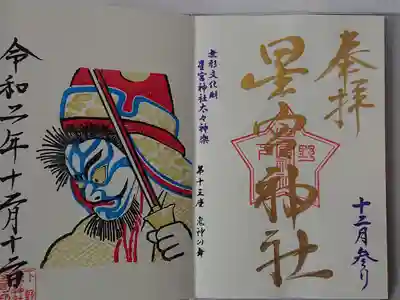 奉拝
星宮神社
十二月参り
無形文化財
星宮神社太々神楽
第十三座 鬼神の舞
令和二年十二月十二日